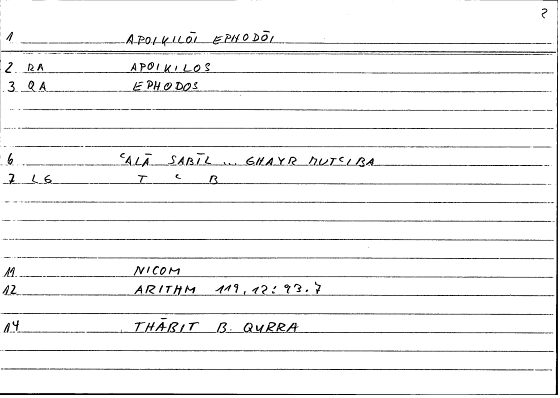 2
1 APOIKILŌI EPHODŌI
2 RA APOIKILOS
3 QA EPHODOS
6 ʿALĀ SABĪL ... GHAYR MUTʿIBA
7 LG T ʿ B
11 NICOM
12 ARITHM 119,12: 93.7
14 THĀBIT B. QURRA